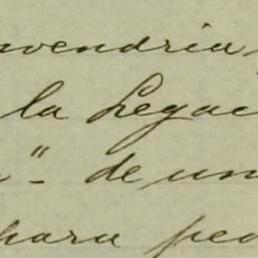 nvendria
la Legac
" - de un
para ped